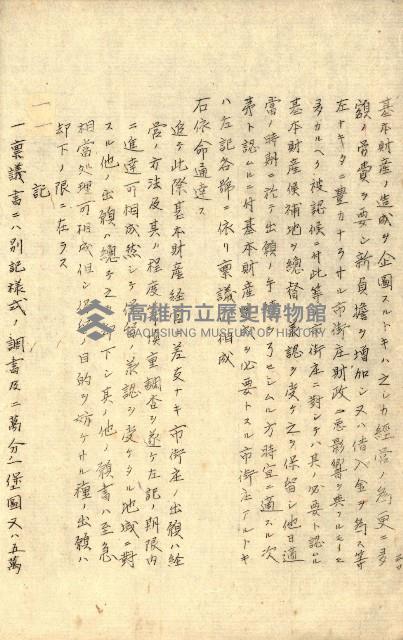 基本財產ノ造成ヲ企圖スルトキハ之レカ經營ノ為更ニ多
額ノ常費ヲ要シ新負擔ヲ增加シ又ハ借入金ヲ為ス等
左ナキタニ豐カナラサル市街庄財政ニ惡影響ヲ與フルモノ
多カルヘク被認候ニ付此等市街庄ニ對シテハ其ノ必要ト認ムル
基本財產候補地ヲ總督ノ承認ヲ受ケ之ヲ保留シ他日適
當ノ時期ニ於テ出願ノ手續ヲ為サシムル方時宜ニ適スル次
第ト認ムルニ付基本財產ヲ必要トスル市街庄アルトキ
ハ左記各號ニ依リ稟議相成
右依命通達ス
追テ此際基本財產經營ニ差支ナキ市街庄ノ出願ハ經
營ノ方法及其ノ程度 慎重調查ヲ遂ケ左記ノ期限內
ニ進達可相成然シテ 承認ヲ受ケタル地域ニ對
スル他ノ出願ハ總テ之 下シ其ノ他ノ願書ハ至急
相當処理可相成但シ 目的ヲ妨ケサル種ノ出願ハ
却下ノ限ニ在ラス
記
一 稟議書ニハ別記樣式ノ調書及二萬分ノ一堡圖又ハ五萬
高雄市立歷史博物館
KAOHSIUNG MUSEUM OF HISTORY